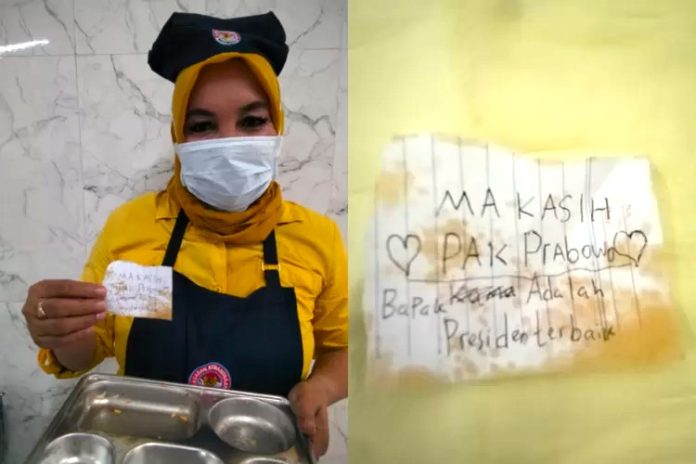 MAKASIH
PAK Prabowo
Bapak Adalah
Presiden terbaik